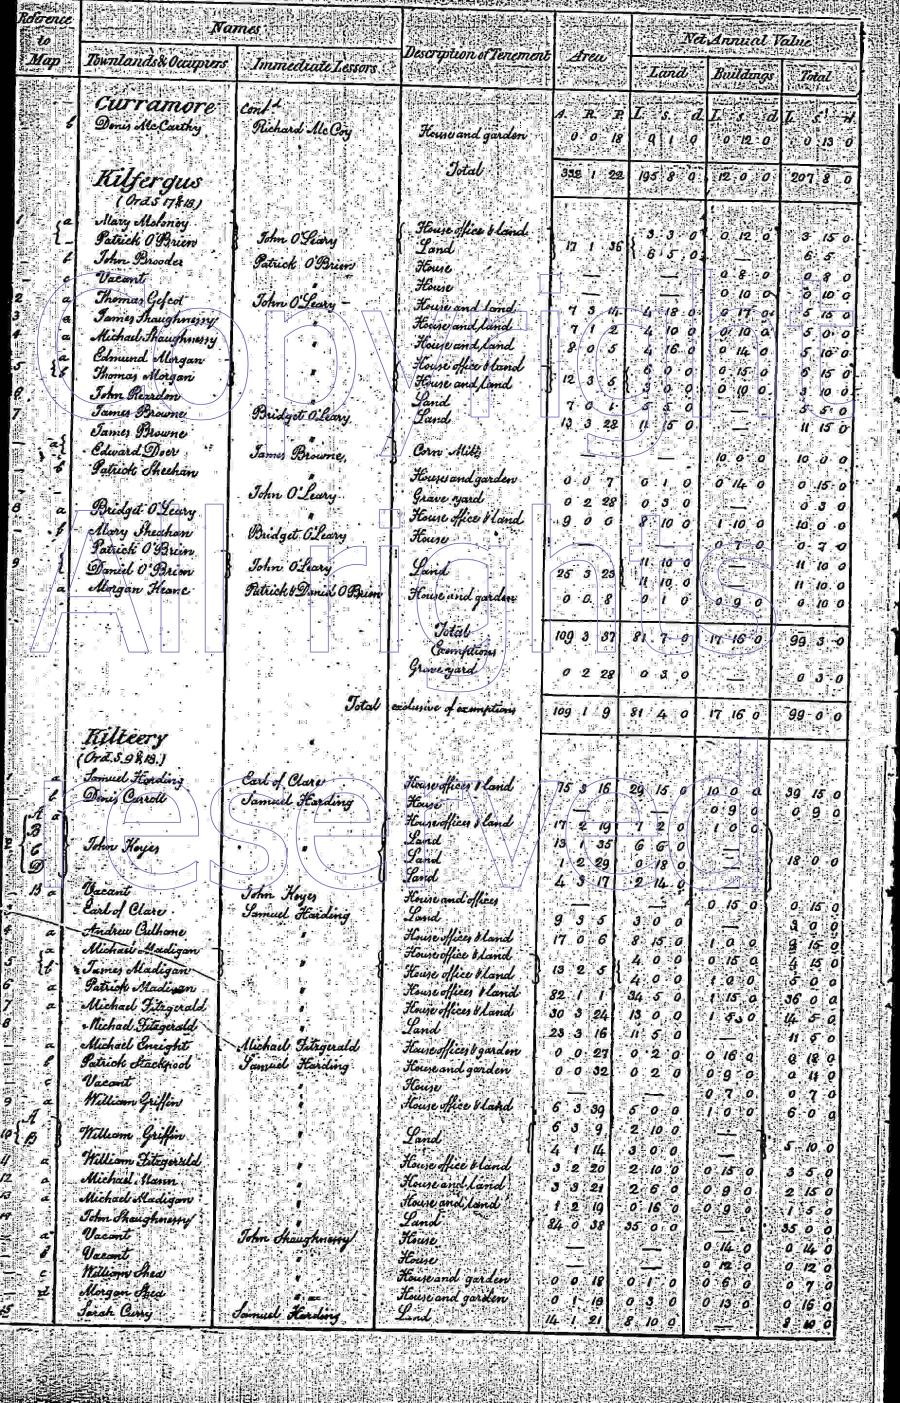 Reference to Map | Names | Description of Tenement | Area | Net Annual Value
Townlands & Occupiers | Immediate Lessors | Land | Buildings | Total
Curramore Contd | A. R. P. | L. s. d. | L. s. d. | L. s. d.
b Denis McCarthy | Richard McCoy | House and garden | 0 0 18 | 0 1 0 | 0 12 0 | 0 13 0
Total | 332 1 22 | 195 8 0 | 12 0 0 | 207 8 0
Kilfergus
(Ord. S 17 & 18)
1 a Mary Moloney | John O'Leary | House office & land | 17 1 36 | 3 3 0 | 0 12 0 | 3 15 0
– Patrick O'Brien | Land | 6 5 0 | — | 6 5
b John Brooder | Patrick O'Brien | House | — | — | 0 8 0 | 0 8 0
c Vacant | " | House | — | — | 0 10 0 | 0 10 0
2 a Thomas | John O'Leary | House and land | 7 3 14 | 4 18 0 | 0 17 0 | 5 15 0
3 a James Shaughnessy | " | House and land | 7 1 2 | 4 10 0 | 0 10 0 | 5 0 0
4 a Michael Shaughnessy | House and land | 8 0 5 | 4 16 0 | 0 14 0 | 5 10 0
5 a Edmund Morgan | " | House office & land | 12 3 5 | 6 0 0 | 0 15 0 | 6 15 0
b Thomas Morgan | House and land | 3 0 0 | 0 10 0 | 3 10 0
6 John Reardon | " | Land | 7 0 1 | 5 5 0 | — | 5 5 0
7 James Browne | Bridget O'Leary | Land | 13 3 28 | 11 15 0 | — | 11 15 0
a James Browne | "
Edward Doer | James Browne | Corn Mill | — | — | 10 0 0 | 10 0 0
b Patrick Sheehan | " | House and garden | 0 0 7 | 0 1 0 | 0 14 0 | 0 15 0
– John O'Leary | Grave yard | 0 2 28 | 0 3 0 | — | 0 3 0
8 a Bridget O'Leary | " | House office & land | 9 0 0 | 8 10 0 | 1 10 0 | 10 0 0
b Mary Sheahan | Bridget O'Leary | House | — | — | 0 7 0 | 0 7 0
9 Patrick O'Brien | John O'Leary | Land | 25 3 23 | 11 10 0 | — | 11 10 0
Daniel O'Brien | 11 10 0 | 11 10 0
a Morgan Heane | Patrick & Daniel O'Brien | House and garden | 0 0 8 | 0 1 0 | 0 9 0 | 0 10 0
Total | 109 3 37 | 81 7 0 | 17 16 0 | 99 3 0
Exemptions
Grave yard | 0 2 28 | 0 3 0 | — | 0 3 0
Total exclusive of exemptions | 109 1 9 | 81 4 0 | 17 16 0 | 99 0 0
Kilteery
(Ord. S. 9 & 18.)
1 a Samuel Harding | Earl of Clare | House offices & land | 75 3 16 | 29 15 0 | 10 0 0 | 39 15 0
b Denis Carroll | Samuel Harding | House | — | — | 0 9 0 | 0 9 0
A a | House offices & land | 17 2 19 | 7 2 0 | 1 0 0
B | Land | 13 1 35 | 6 6 0 | —
2 C John Hoyes | " | Land | 1 2 29 | 0 18 0 | — | 18 0 0
D | Land | 4 3 17 | 2 14 0 | —
B a Vacant | John Hoyes | House and offices | — | — | 0 15 0 | 0 15 0
Earl of Clare | Samuel Harding | Land | 9 3 5 | 3 0 0 | — | 3 0 0
4 a Andrew Culhane | " | House offices & land | 17 0 6 | 8 15 0 | 1 0 0 | 9 15 0
5 a Michael Madigan | " | House office & land | 13 2 5 | 4 0 0 | 0 15 0 | 4 15 0
b James Madigan | House office & land | 4 0 0 | 1 0 0 | 5 0 0
6 a Patrick Madigan | " | House offices & land | 82 1 1 | 34 5 0 | 1 15 0 | 36 0 0
7 a Michael Fitzgerald | " | House offices & land | 30 3 24 | 13 0 0 | 1 5 0 | 14 5 0
8 Michael Fitzgerald | " | Land | 23 3 16 | 11 5 0 | — | 11 5 0
a Michael Enright | Michael Fitzgerald | House offices & garden | 0 0 27 | 0 2 0 | 0 16 0 | 0 18 0
b Patrick Stackpool | Samuel Harding | House and garden | 0 0 32 | 0 2 0 | 0 9 0 | 0 11 0
c Vacant | " | House | — | — | 0 7 0 | 0 7 0
9 a William Griffin | " | House office & land | 6 3 39 | 5 0 0 | 1 0 0 | 6 0 0
10 A | 6 3 9 | 2 10 0 | —
B William Griffin | " | Land | 4 1 14 | 3 0 0 | — | 5 10 0
11 a William Fitzgerald | " | House office & land | 3 2 20 | 2 10 0 | 0 15 0 | 3 5 0
12 a Michael Mann | " | House and land | 3 3 21 | 2 6 0 | 0 9 0 | 2 15 0
13 a Michael Madigan | " | House and land | 1 2 19 | 0 16 0 | 0 9 0 | 1 5 0
14 John Shaughnessy | " | Land | 84 0 38 | 35 0 0 | — | 35 0 0
a Vacant | John Shaughnessy | House | — | — | 0 14 0 | 0 14 0
b Vacant | " | House | — | — | 0 12 0 | 0 12 0
c William Shea | " | House and garden | 0 0 18 | 0 1 0 | 0 6 0 | 0 7 0
d Morgan Shea | " | House and garden | 0 1 19 | 0 3 0 | 0 13 0 | 0 16 0
15 Sarah Curry | Samuel Harding | Land | 14 1 21 | 8 10 0 | — | 8 10 0
Copyright
All rights
reserved